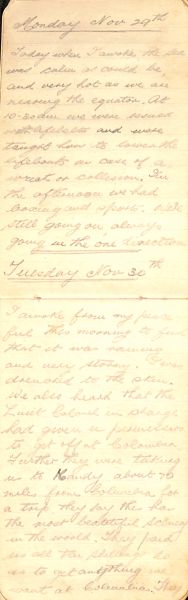 Monday Nov 29th
Today when I awoke the sea
was calm as could be,
and very hot as we are
nearing the equator. At
10-30am we were issued
with lifebelts and were
taught how to lower the
lifeboats in case of a
wreck or collision. In
the afternoon we had
boxing and sports. We're
still going on, always
going in the one direction.
Tuesday Nov 30th
I awoke from my peace
ful this morning to find
that it was raining
and very stormy. I was
drenched to the skin.
We also heard that the
Lieut Colonel in charge
had given us permission
to get off at Columbia
Further they were taking
us to Kandy about 70
miles from Columbia for
a trip, they say this has
the most beautiful scenery
in the world. They paid
us all five shillings so
as to get anything we
want at Columbia. They